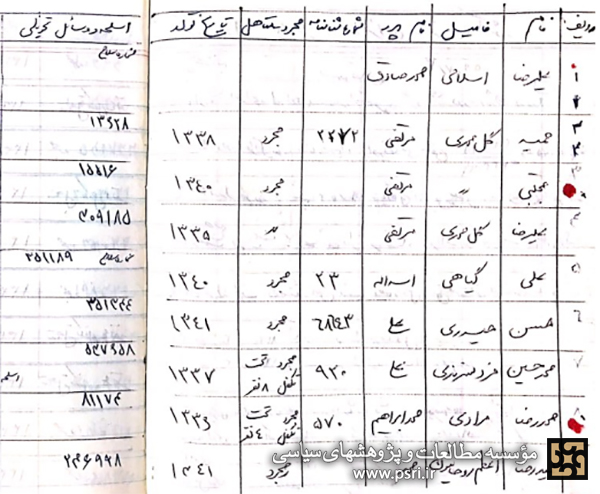 ردیف نام فامیل نام پدر شماره شناسنامه مجرد متاهل تاریخ تولد اسلحه و وسائل تحویلی
۱ علیرضا اسلامی محمدصادق شماره سلاح
۲
۳ حمید گل‌محمدی مرتضی ۲۲۷۲ مجرد ۱۳۳۸ ۱۳۶۲۸
مجتبی 〃 مرتضی مجرد ۱۳۴۰ ۱۵۵۱۶
۴ علیرضا گل‌محمدی مرتضی 〃 ۱۳۳۵ ۳۰۹۱۸۵
۵ علی گیاهی اسداله ۲۳ مجرد ۱۳۴۰ شماره سلاح ۲۵۱۱۸۹
۶ حسن حیدری علی ۶۸۴۳ مجرد ۱۳۴۱ ۳۵۱۳۴۴
۷ محمدحسین علی ۹۲۰ مجرد تحت تکفل ۸ نفر ۱۳۳۷ ۵۴۷۶۵۸
محمدرضا مرادی محمدابراهیم ۵۷۰ مجرد تحت تکفل ۴ نفر ۱۳۳۶ ۸۱۱۷۴
مجرد ۱۳۴۱ ۲۴۶۹۲۸
موسسه مطالعات و پژوهشهای سیاسی
www.psri.ir